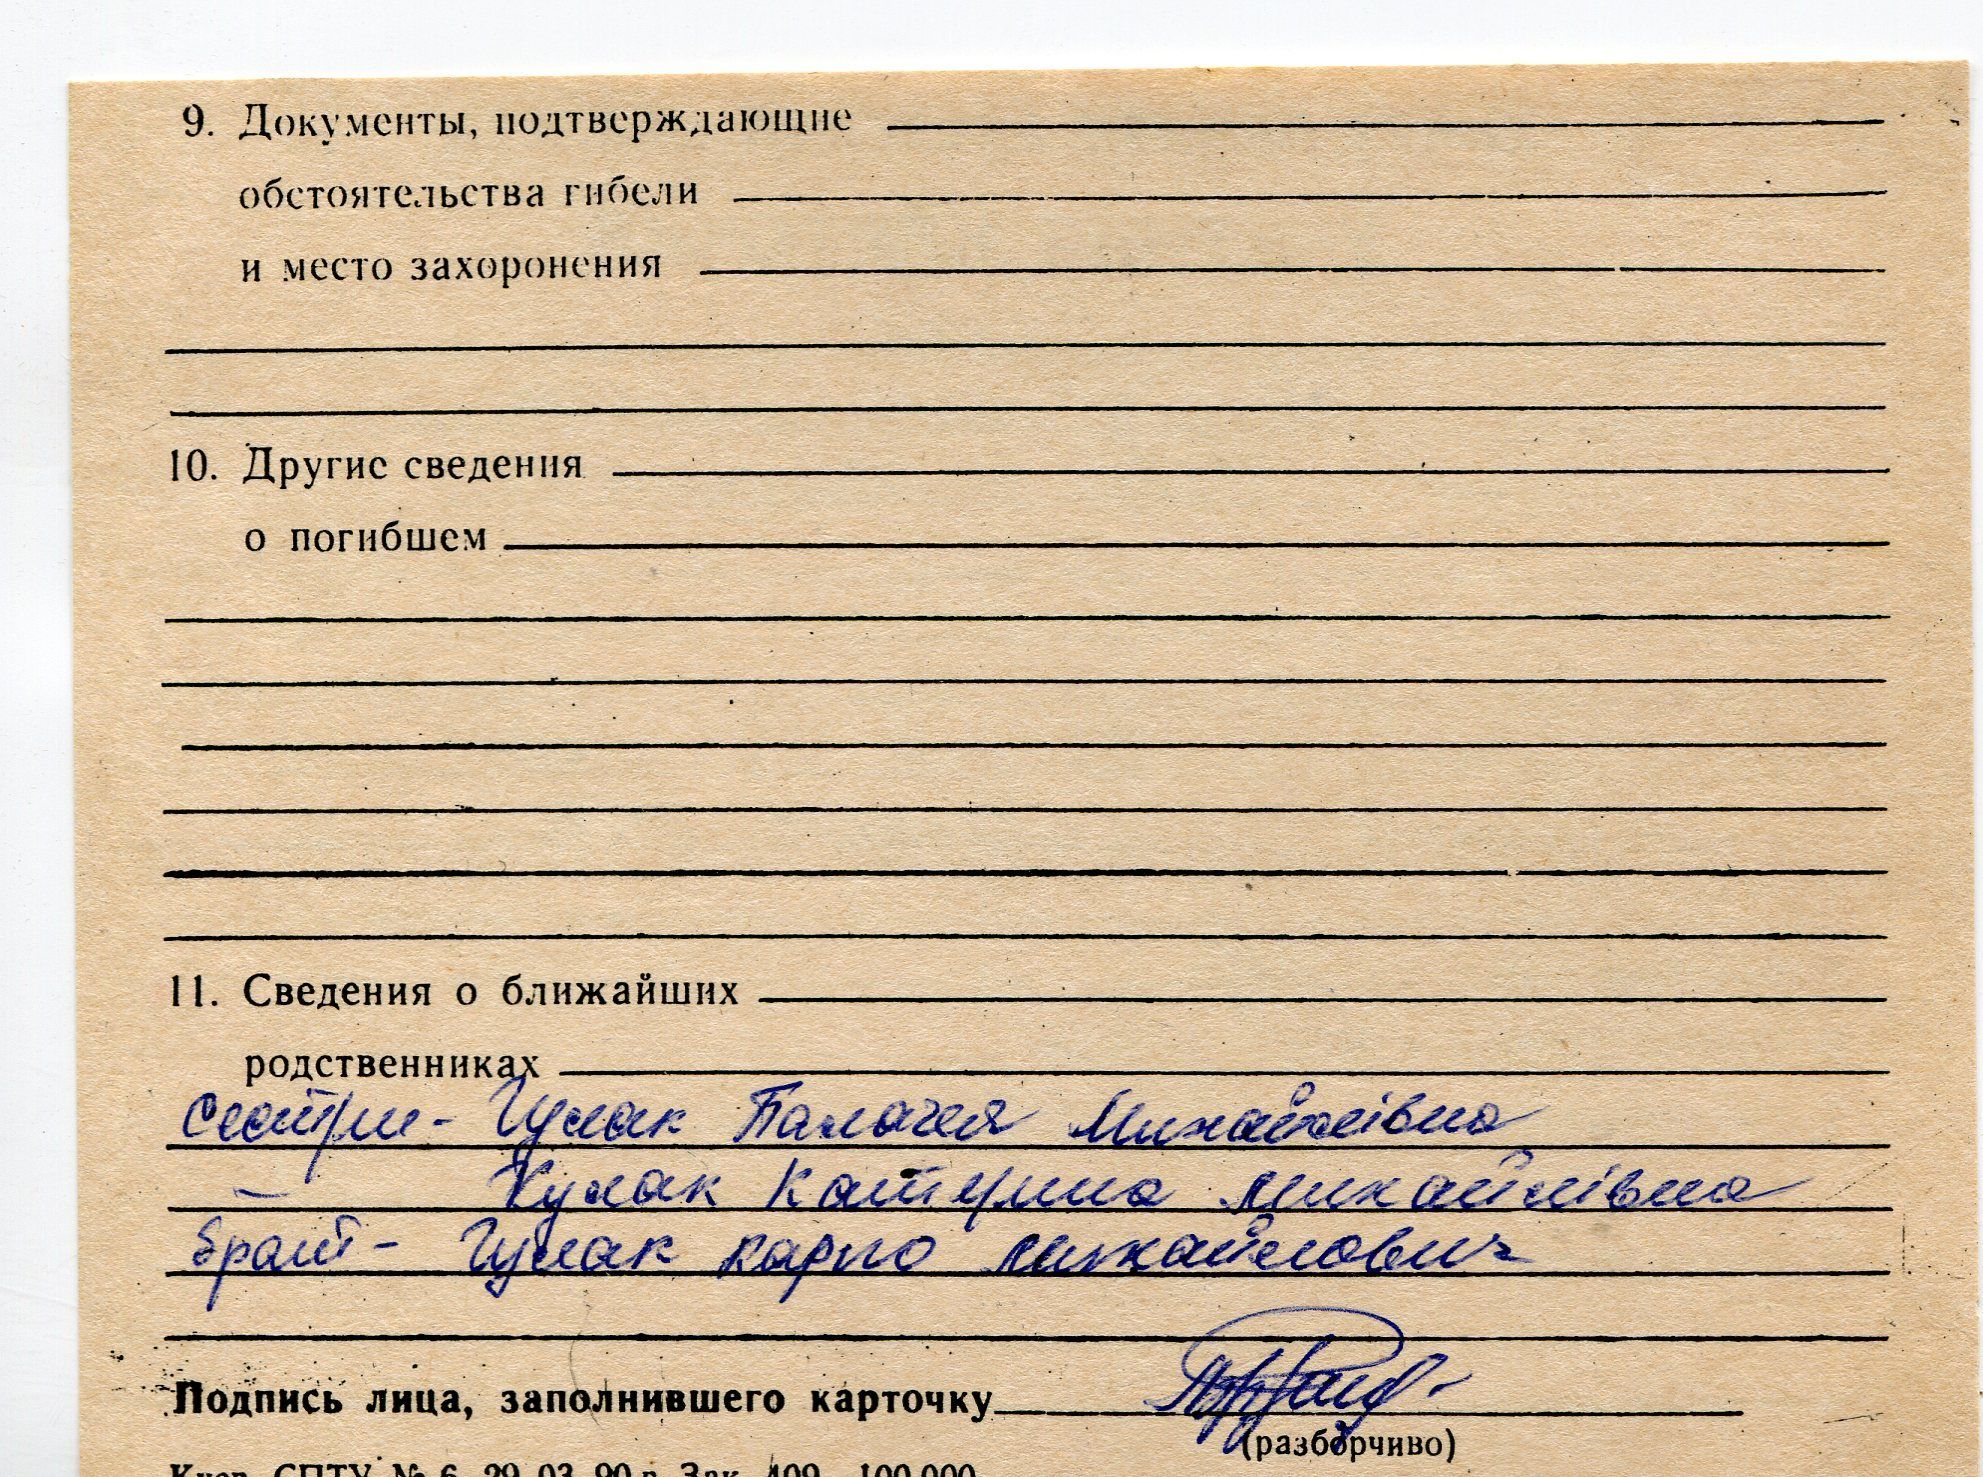 9. Документы, подтверждающие
обстоятельства гибели
и место захоронения
10. Другие сведения
о погибшем
11. Сведения о ближайших
родственниках
сестри - Гулак Палагея Михайлівна
— Кулак Катерина Михайлівна
брат - Гулак Карпо Михайлович
Подпись лица, заполнившего карточку
(разборчиво)
Киев, СПТУ № 6, 29. 03. 90 г. Зак. 409 100.000